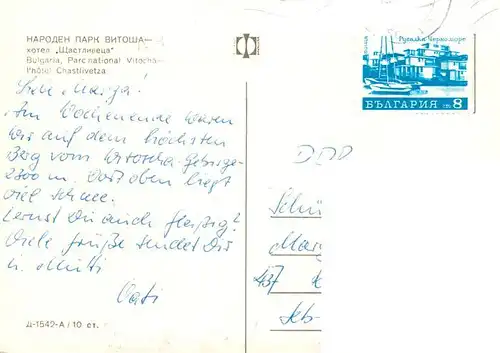 НАРОДЕН ПАРК ВИТОША—
хотел „Щастливеца"
Bulgaria, Parc national Vitocha—
l'hôtel Chastlivetza
Liebe Marga!
Am Wochenende waren
wir auf dem höchsten
Berg vom Witoscha-Gebirge
2300 m. Dort oben liegt
viel Schnee.
Lernst Du auch fleißig?
Viele Grüße sendet Dir
u. Mutti
Vati
Д-1542-А/10 ст.
Русалка Черноморе
БЪЛГАРИЯ ст. 8
DDR
Schü
Mar
437